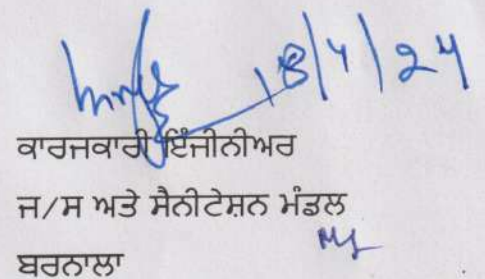 18/4/24
ਕਾਰਜਕਾਰੀ ਇੰਜੀਨੀਅਰ
ਜ/ਸ ਅਤੇ ਸੈਨੀਟੇਸ਼ਨ ਮੰਡਲ
ਬਰਨਾਲਾ